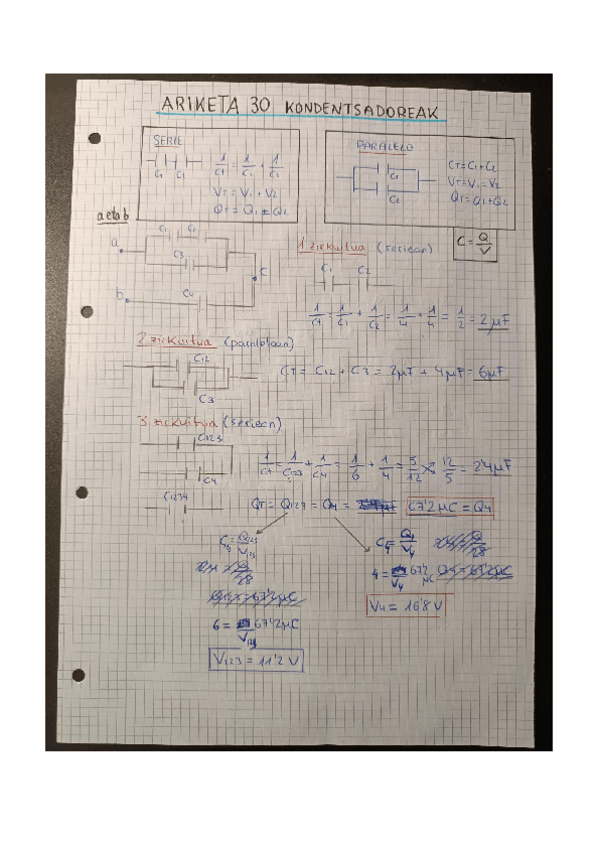 ARIKETA 30 KONDENTSADOREAK
SERIE
C1 C2
1/CT = 1/C1 + 1/C2
VT = V1 + V2
QT = Q1 = Q2
PARALELO
C1
C2
CT = C1 + C2
VT = V1 = V2
QT = Q1 + Q2
C = Q/V
a eta b
a
C1 C2
C3
C
b
C4
1 zirkuitua (seriean)
C1 C2
1/CT = 1/C1 + 1/C2 = 1/4 + 1/4 = 1/2 = 2 μF
2 zirkuitua (paraleloan)
C12
C3
CT = C12 + C3 = 2μF + 4μF = 6μF
3 zirkuitua (seriean)
C123
C4
C1234
1/CT = 1/C123 + 1/C4 = 1/6 + 1/4 = 5/12 12/5 = 2'4μF
QT = Q123 = Q4 = 67'2 μC = Q4
C123 = Q123/V123
6 = 67'2μC/V123
V123 = 11'2 V
C4 = Q4/V4
4 = 67'2 μC/V4
V4 = 16'8 V